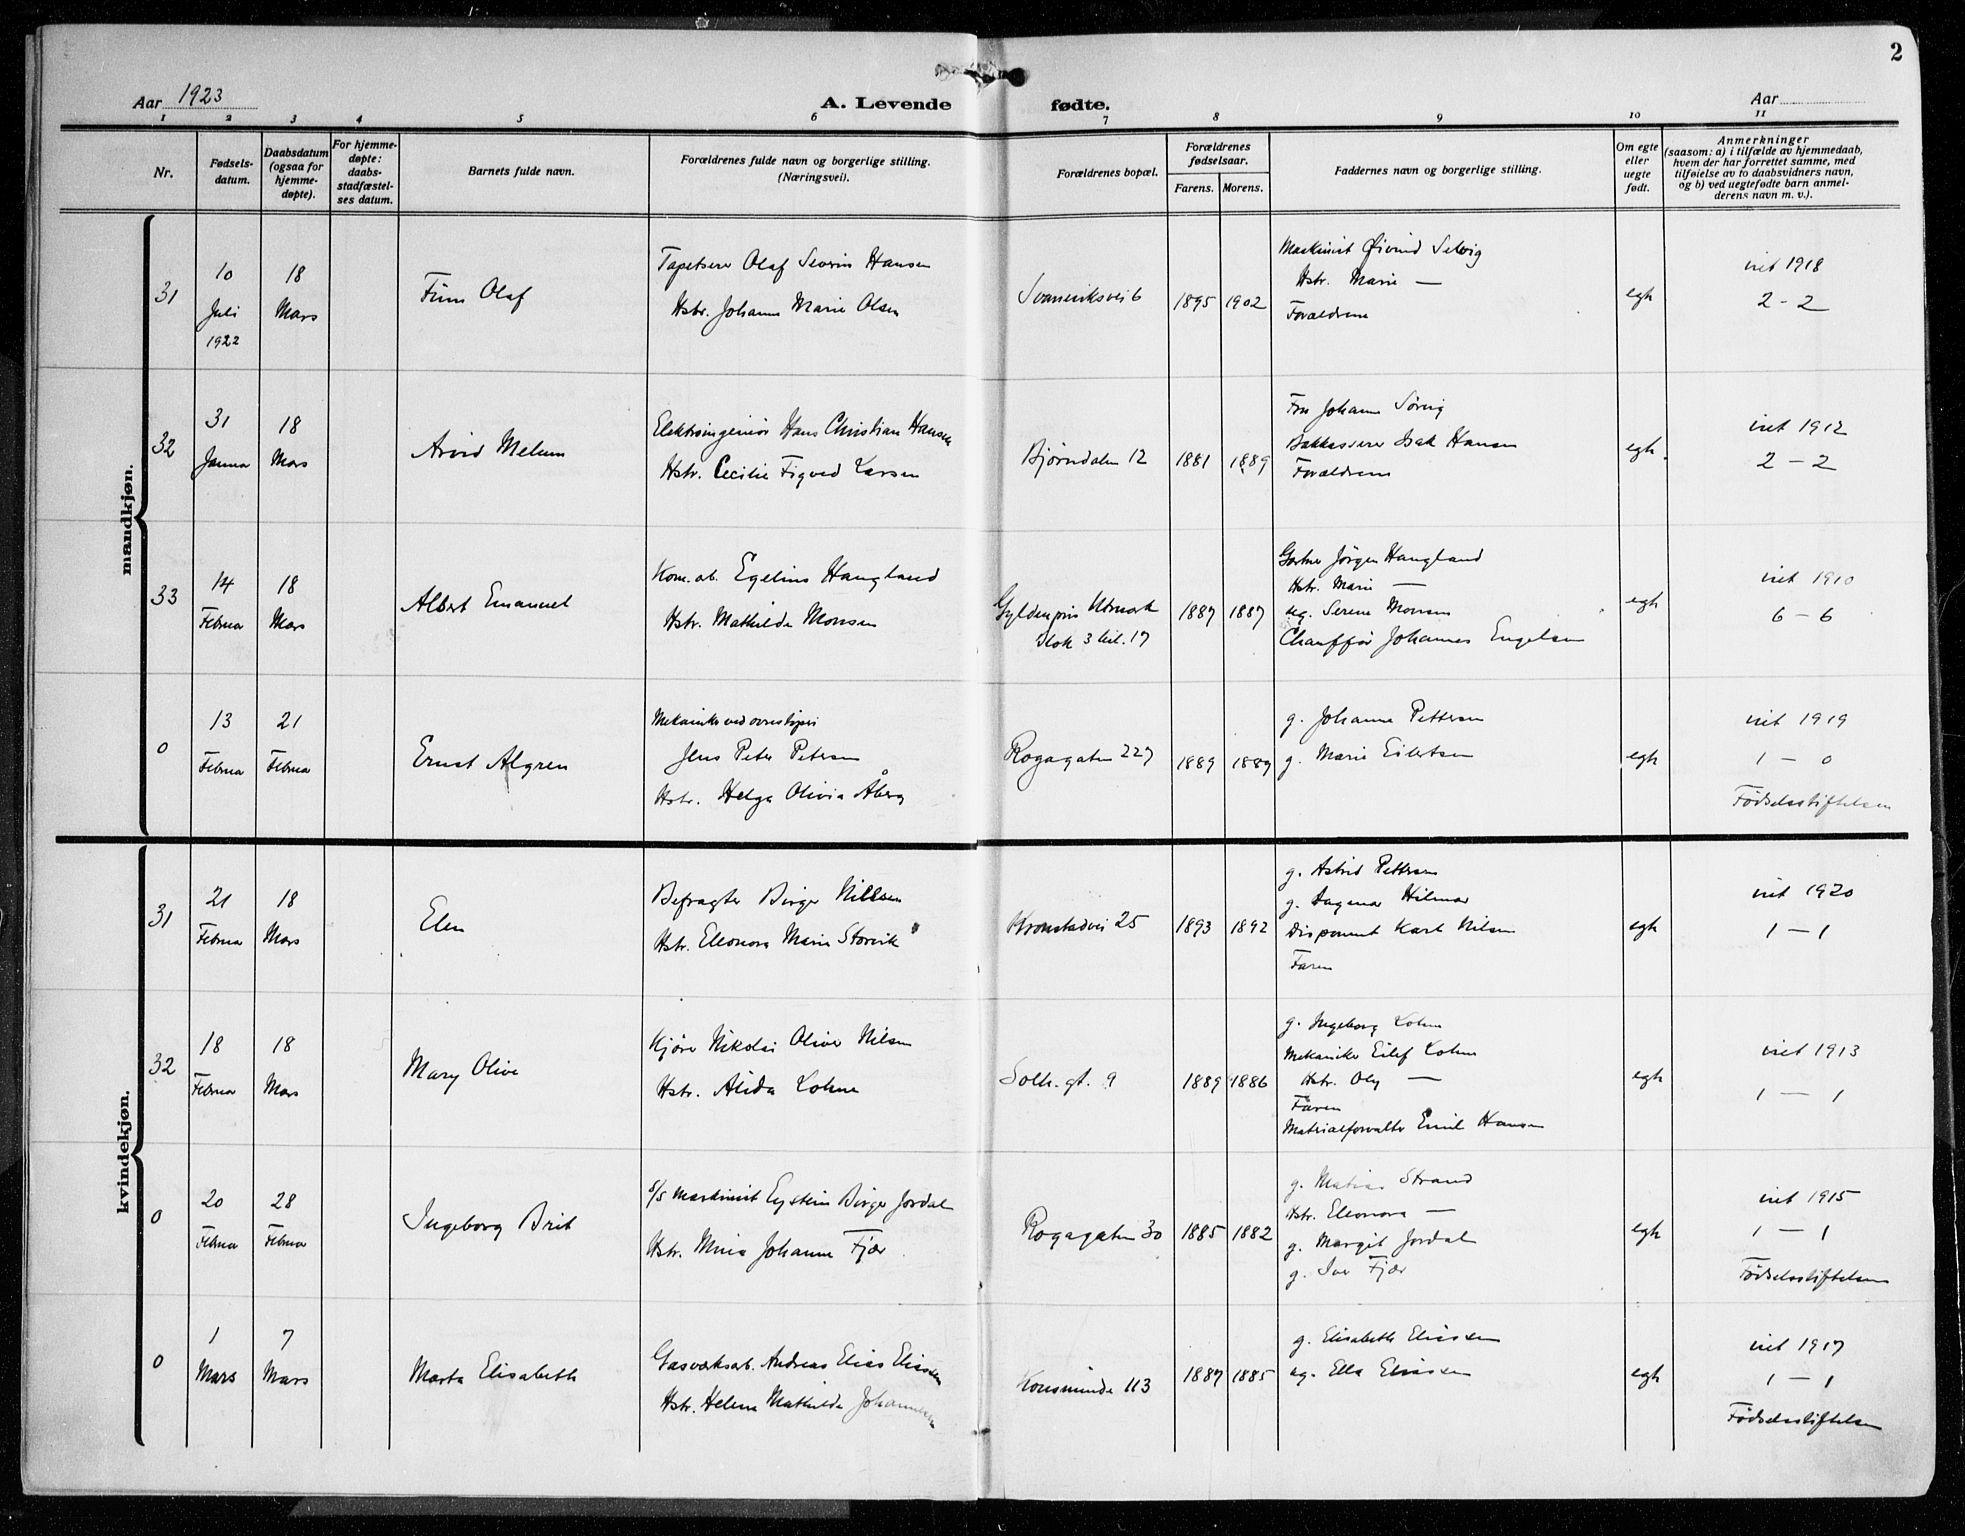 2
Aar 1923
A. Levende fødte.
Aar
1 2 3 4 5 6 7 8 9 10 11
Nr.
Fødsels-
datum.
Daabsdatum
(ogsaa for
hjemme-
døpte).
For hjemme-
døpte:
daabs-
stadfæstel-
ses datum.
Barnets fulde navn.
Forældrenes fulde navn og borgerlige stilling.
(Næringsvei).
Forældrenes bopæl.
Forældrenes
fødselsaar.
Farens. Morens.
Faddernes navn og borgerlige stilling.
Om egte
eller
uegte
født.
Anmerkninger
(saasom: a) i tilfælde av hjemmedaab,
hvem der har forrettet samme, med
tilføielse av to daabsvidners navn,
og b) ved uegtefødte barn anmel-
derens navn m. v.).
mandkjøn.
31
10
Juli
1922
18
Mars
Finn Olaf
Tapetserer Olaf Severin Hansen
Hstr. Johanne Marie Olsen
1895 1902
Maskinist Øivind Selvig
Hstr. Marie —
Forældrene
egte
viet 1918
2 - 2
32
31
Januar
18
Mars
Arvid Melum
Elektroingeniør Hans Christian Hansen
Hstr. Cecilie Figved Larsen
Bjørndalen 12
1881 1889
Fru Johanne
Isak Hansen
Forældrene
egte
viet 1912
2 - 2
33
14
Februar
18
Mars
Albert Emanuel
Kom. arb. Egelius Haugland
Hstr. Mathilde Monsen
Gyldenpris Utmark
Blok 3 leil. 17
1887 1887
Gartner Jørgen Haugland
Hstr. Marie —
ug. Serene Monsen
Chauffør Johannes Engelsen
egte
viet 1910
6 - 6
0
13
Februar
21
Februar
Ernst Algren
Mekaniker
Jens Peter Petersen
Hstr. Helga Olivia Åberg
227
1889 1889
g. Johanne Pettersen
g. Marie Eilertsen
egte
viet 1919
1 - 0
Fødselsstiftelsen
kvindekjøn.
31
21
Februar
18
Mars
Elen
Befragter Birger Nilssen
Hstr. Eleonora Marie Storvik
Kronstadvei 25
1893 1892
g. Astrid Pettersen
g. Dagmar Hilmar
Disponent Karl Nilsen
Faren
egte
viet 1920
1 - 1
32
18
Februar
18
Mars
Mary Olive
Kjører Nikolai Oliver Nilsen
Hstr. Alida Lohne
Solh. gt. 9
1889 1886
g. Ingeborg Lohne
Mekaniker Eilef Lohne
Hstr. Oly —
Faren
Materialforvalter Emil Hansen
egte
viet 1913
1 - 1
0
20
Februar
28
Februar
Ingeborg Brit
s/s maskinist Eystein Birger Jordal
Hstr. Mina Johanne Fjær
30
1885 1882
g. Matias Strand
Hstr. Eleonora —
g. Margit Jordal
g. Iver Fjær
egte
viet 1915
1 - 1
Fødselsstiftelsen
0
1
Mars
7
Mars
Marta Elisabeth
Gasverksarb. Andreas Elias Eliassen
Hstr. Helena Mathilde Johannessen
Konsminde 113
1887 1885
g. Elisabeth Eliassen
ug. Ella Eliassen
egte
viet 1917
1 - 1
Fødselsstiftelsen